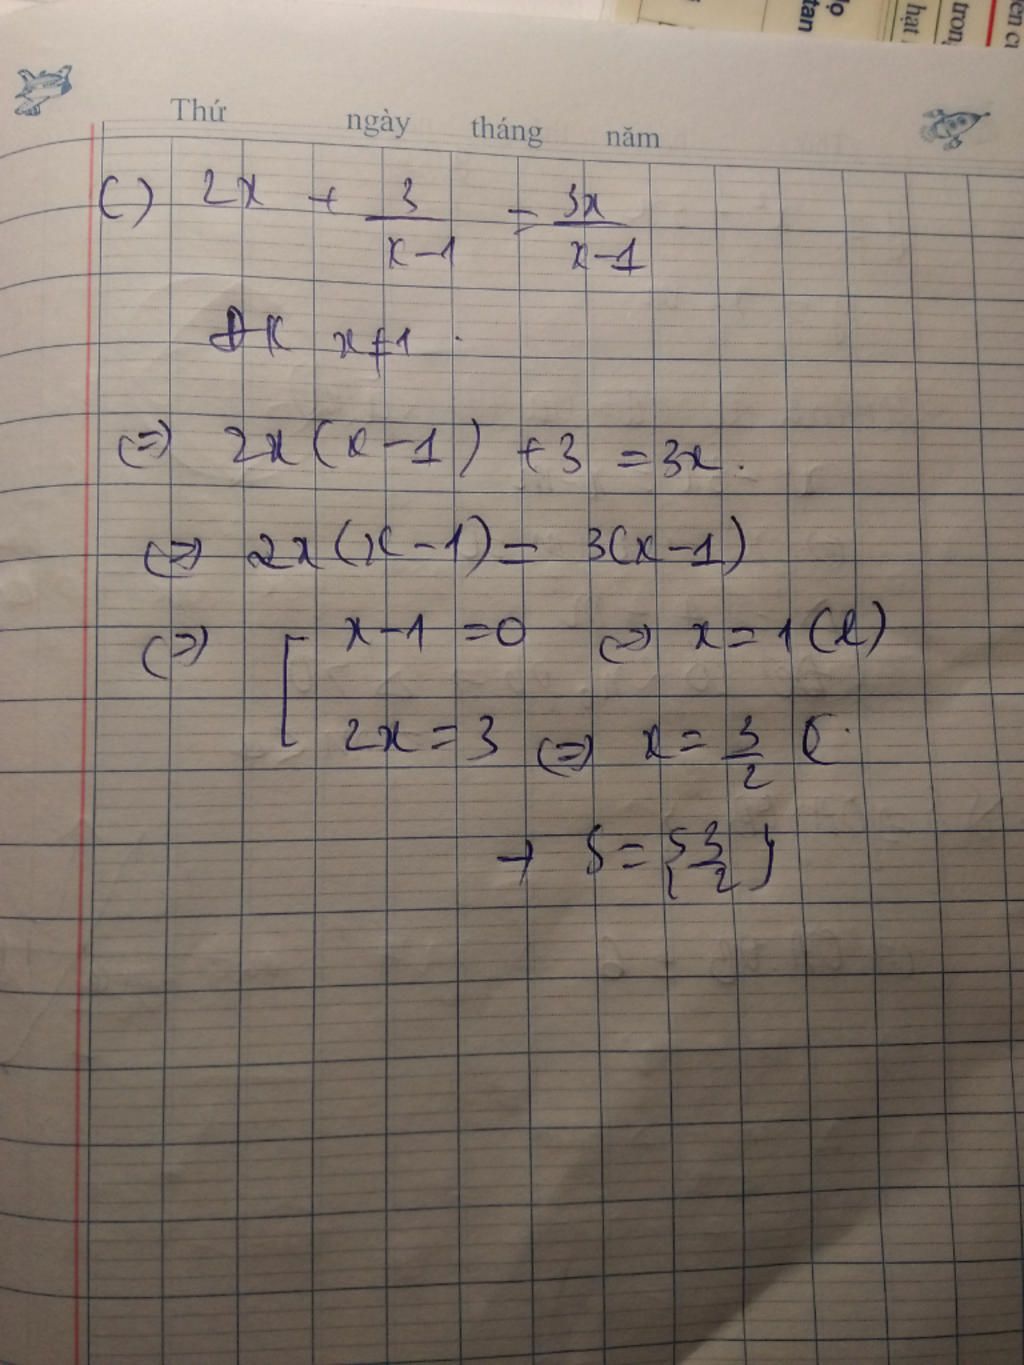 lọ
tan
hạt
trong
Thứ ngày tháng năm
c) 2x + 3/(x-1) = 3x/(x-1)
ĐK x≠1.
(=) 2x(x-1) + 3 = 3x.
(=) 2x(x-1) = 3(x-1)
(=) [ x-1 =0 (=) x=1(l)
2x=3 (=) x= 3/2 (
→ S={3/2}